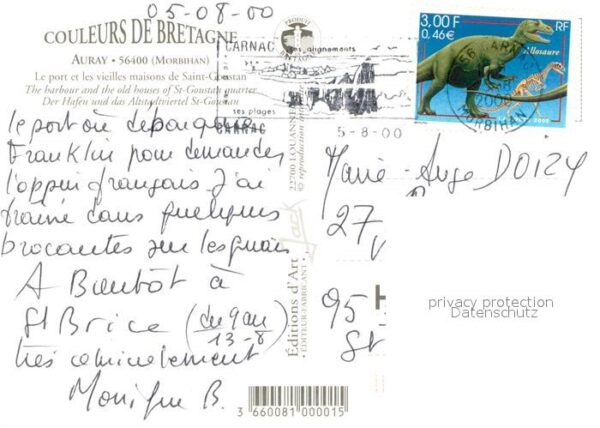 05-08-00
COULEURS DE BRETAGNE
AURAY • 56400 (MORBIHAN)
Le port et les vieilles maisons de Saint-Goustan
The harbour and the old houses of St-Goustan quarter
Der Hafen und das Altstadtviertel St-Goustan
PRODUIT
BRETAGNE
CARNAC
ses alignements
ses plages
CARNAC
5-8-00
3,00 F
0,46€
RF
Allosaure
le port où débarqua
Franklin pour demander
l'appui français J'ai
traîné dans quelques
brocantes sur les quais
A Bientôt à
St Brice (du 9 au
13-8)
très amicalement
Monique B.
Marie-Ange DOIZY
27,
95
St
Jack
Editions d'Art
EDITEUR-FABRICANT
22700 LOUANNEC
© reproduction
privacy protection
Datenschutz
3 660081 000015